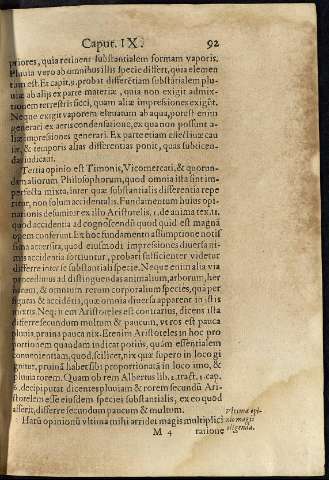 Caput. IX. 92
priores, quia retinent substantialem formam vaporis.
Pluuia vero ab omnibus illis specie differt, quia elemen
tum est Ex capit. 9. probat differētiam substātialem plu-
uiæ ab alijs ex parte materiæ, quia non exigit admix-
tionem terrestris sicci, quam aliæ impressiones exigūt.
Neque exigit vaporem eleuatum ab aqua, potest enim
generari ex aeris condensatione, ex qua non possunt a-
liæ impressiones generari. Ex parte etiam efficiētiæ cau
sæ, & temporis alias differentias ponit, quas subicen-
das iudicaui.
Tertia opinio est Timonis, Vicomercati, & quorun-
dam aliorum Philosophorum, quod omnia ista sint im-
perfecta mixta, inter quæ substantialis differentia repe
ritur, non solum accidentalis. Fundamentum huius opi-
nationis desumitur ex illo Aristotelis, 1. de anima tex. 11.
quod accidentia ad cognoscendū quod quid est magnā
opem conferunt. Ex hoc fundamento assumptione notis
sima accersita, quod eiusmodi impressiones diuersa ni-
mis accidentia sortiuntur, probari sufficienter videtur
differre inter se substantiali specie. Neque enim alia via
procedimus ad distinguendas animalium, arborum, her
barum, & omnium rerum corporalium species, quā per
figuras & accidētia, quæ omnia diuersa apparent in istis
mixtis. Neq; in rem Aristoteles est contrarius, dicens illa
differre secundum multum & paucum, vt ros est pauca
pluuia, pruina pauca nix. Etenim Aristoteles in hoc pro
portionem quandam indicat potius, quàm essentialem
conuenientiam, quod, scilicet, nix quæ supero in loco gi
gnitur, pruinā habet sibi proportionatā in loco imo, &
pluuia rorem. Quam ob rem Albertus lib. 2. tract. 1. cap.
6. decipi putat dicentes pluuiam & rorem secundū Ari-
stotelem esse eiusdem species substantialis, ex eo quod
asserit, differre secundum paucum & multum.
Harū opinionū vltima mihi arridet magis multiplici
Vltima opi-
nio magis
eligenda.
M 4 ratione